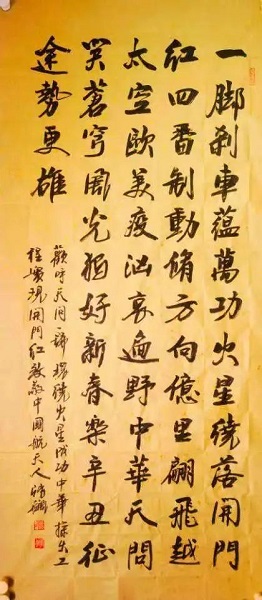 一脚刹車蕴萬功火星繞落開門
红四番制動脩方向億里翩飛越
太空歐美疫汹哀遍野中華天問
笑蒼穹風光独好新春樂辛丑征
途勢更雄
歡呼天問一號環繞火星成功中華探火工
程實現開門红致敬中國航天人